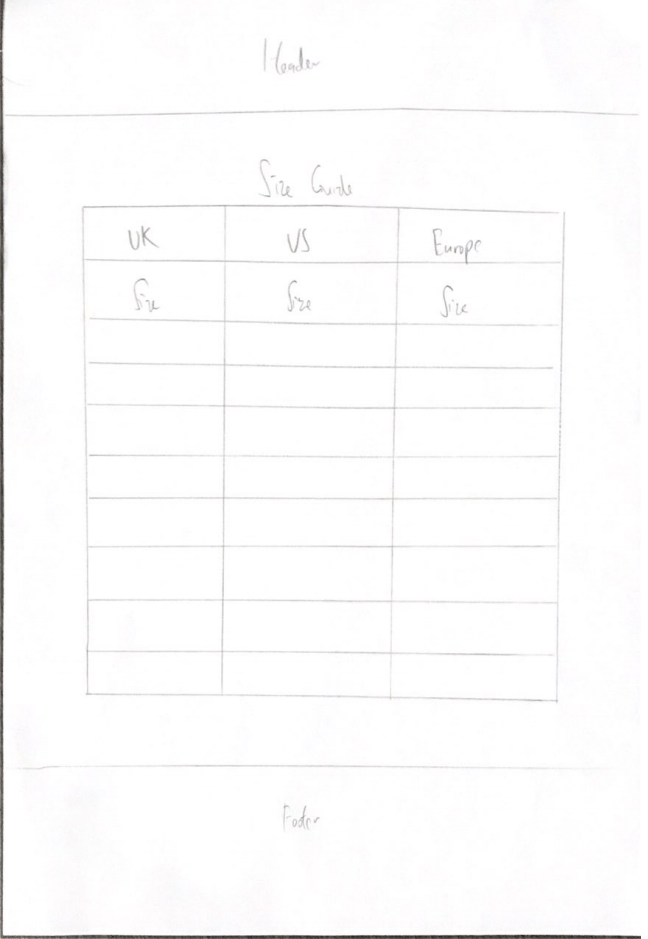 Header
Size Guide
UK US Europe
Size Size Size
Footer